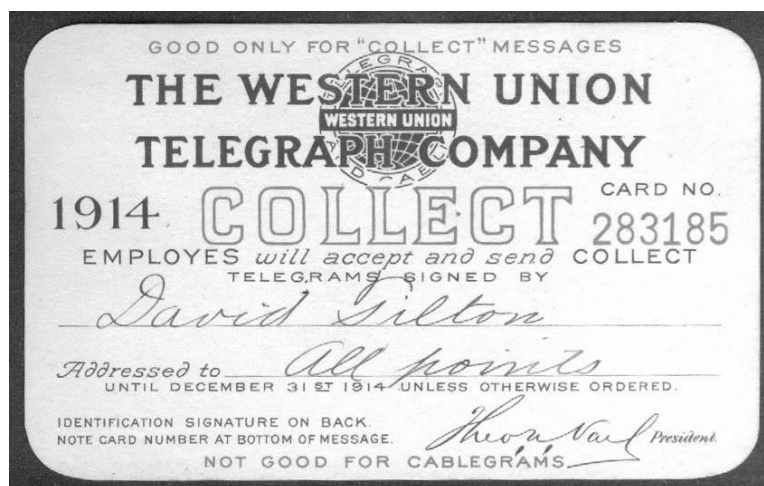 GOOD ONLY FOR "COLLECT" MESSAGES
THE WESTERN UNION
WESTERN UNION
TELEGRAPH COMPANY
1914 COLLECT CARD NO. 283185
EMPLOYES will accept and send COLLECT
TELEGRAMS SIGNED BY
David Gilton
Addressed to All points
UNTIL DECEMBER 31ST 1914 UNLESS OTHERWISE ORDERED.
IDENTIFICATION SIGNATURE ON BACK.
NOTE CARD NUMBER AT BOTTOM OF MESSAGE.
Theo N Vail President.
NOT GOOD FOR CABLEGRAMS